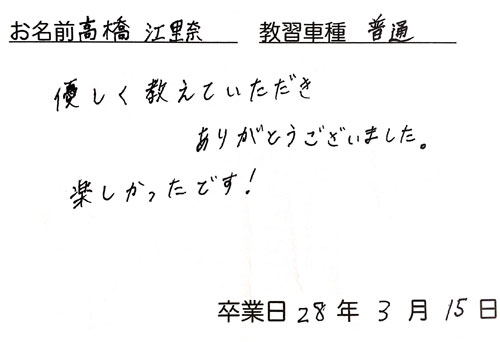 お名前 高橋 江里奈 教習車種 普通
優しく教えていただき
ありがとうございました。
楽しかったです!
卒業日 28年 3月 15日